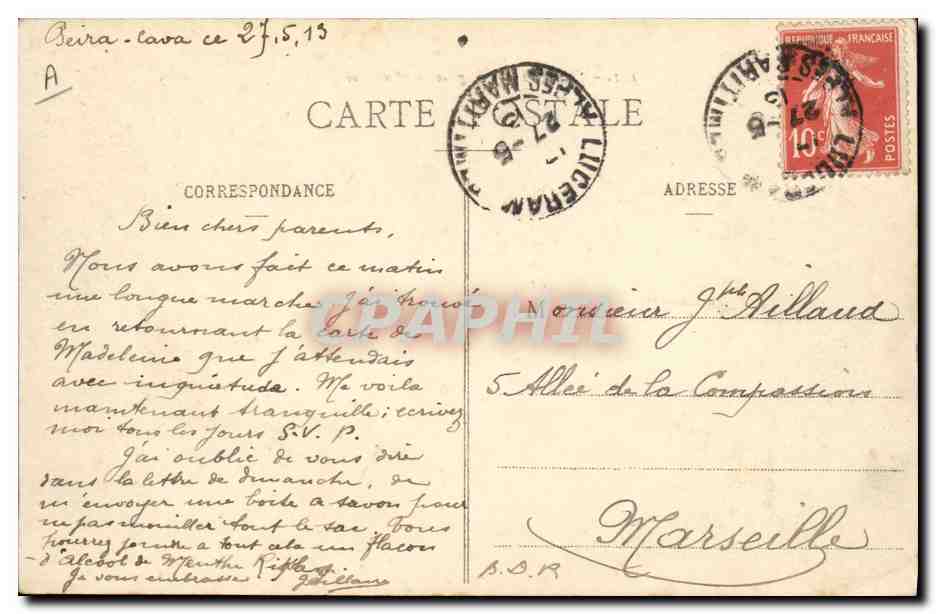 Peira-Cava ce 27.5.13
A
REPUBLIQUE FRANÇAISE
10c
POSTES
LUCERAM
ALPES MARITIMES
27-5
13
LUCERAM
ALPES MARITIMES
27-5
13
CARTE POSTALE
CORRESPONDANCE
ADRESSE
Bien chers parents,
Nous avons fait ce matin
une longue marche J'ai trouvé
en retournant la carte de
Madeleine que j'attendais
avec inquietude. Me voila
maintenant tranquille; ecrivez
moi tous les jours S.V.P.
J'ai oublié de vous dire
dans la lettre de dimanche, de
m'envoyer une boite a savon pour
ne pas mouiller tout le sac. Vous
pourrez joindre a tout cela un flacon
d'Alcool de Menthe Ricqlès
Je vous embrasse
Monsieur Jph Aillaud
5 Allée de la Compassion
Marseille
B.D.R
CPAPHIL